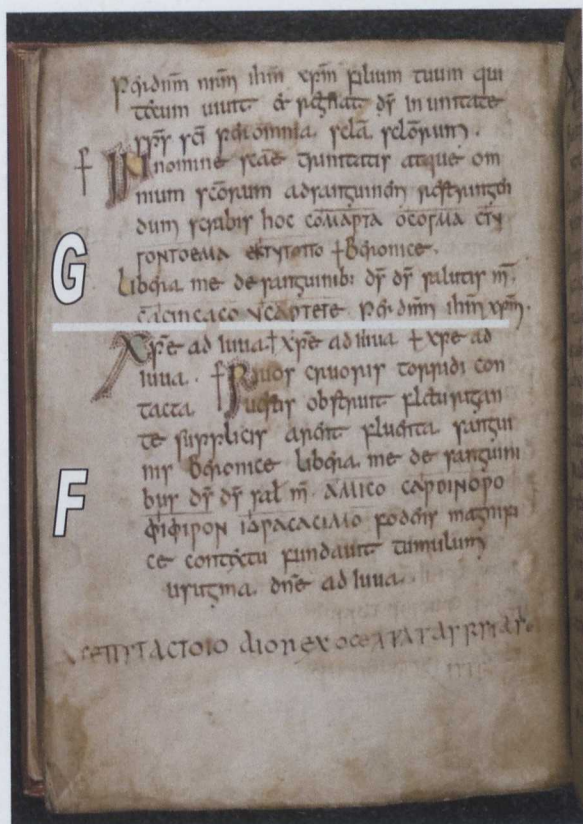 Per dnm nrm ihm xpm filium tuum qui
tecum uiuit & regnat ds in unitate
sps sci per omnia scla sclorum.
† In nomine scae trinitatis atque om
nium scorum ad sanguinem restringen
dum scribis hoc COMAPTA OCOΓMA CTY
ΓONTOEMA EKTYTOΠO † Beronice.
G
Libera me de sanguinib: ds ds salutis m.
CACINCACO YCAPTETE per dnm ihm xpm.
Xpe adiuua † xpe adiuua † xpe ad
iuua. † Riuos cruoris torridi con
tacta uestis obstruit fletu rigan
te supplicis arent fluenta sangui
nis beronice libera me de sanguini
F
bus ds ds sal m. AMICO CAPDINOPO
ΦIΦIPON IDPACACIMO fodens magnifi
ce contextu fundauit tumulum
usugma. dne adiuua.